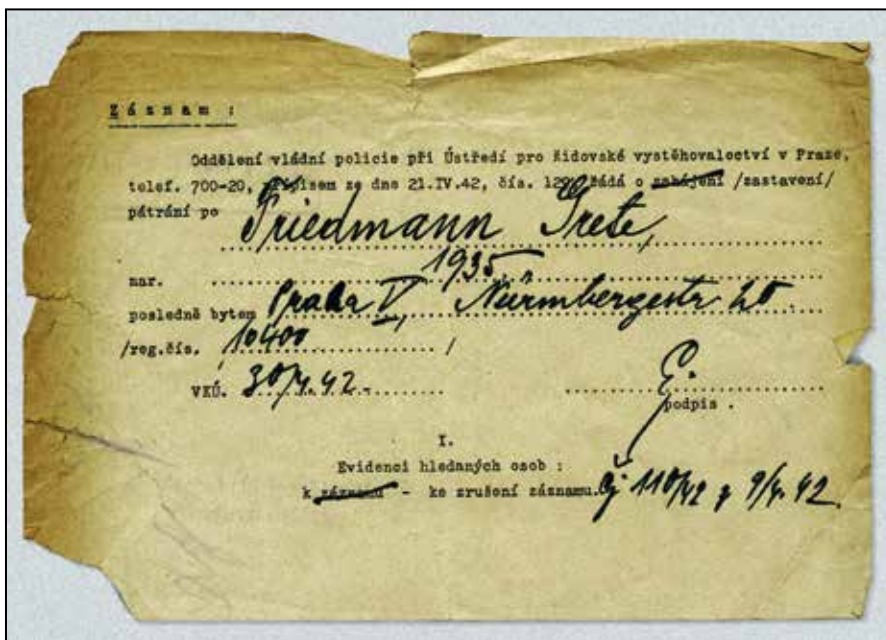 Záznam :
Oddělení vládní policie při Ústředí pro židovské vystěhovalectví v Praze,
telef. 700-20, přípisem ze dne 21.IV.42, čís. 129 žádá o zahájení /zastavení/
pátrání po Friedmann Grete,
nar. 1935
posledně bytem Praha V, Nürmbergestr 20.
/reg.čís. 10400 /
VKÚ. 30/4.42.-
podpis .
I.
Evidenci hledaných osob :
k záznamu - ke zrušení záznamu. Čj 110/42 z 9/4.42.